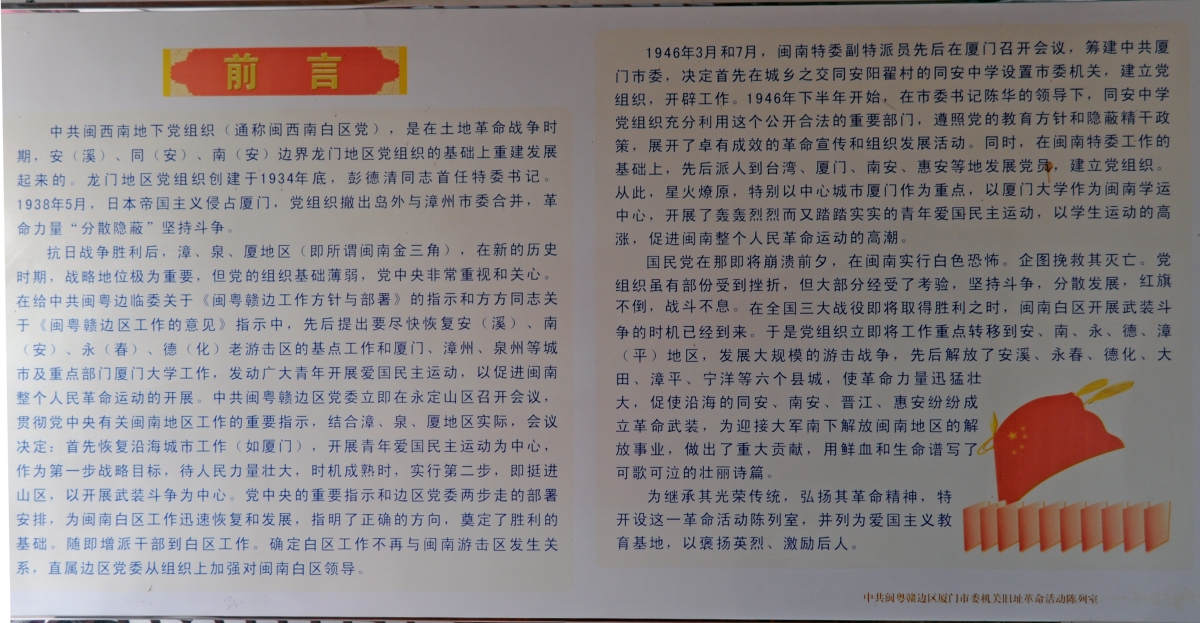 前言
中共闽西南地下党组织（通称闽西南白区党），是在土地革命战争时
期，安（溪）、同（安）、南（安）边界龙门地区党组织的基础上重建发展
起来的。龙门地区党组织创建于1934年底，彭德清同志首任特委书记。
1938年5月，日本帝国主义侵占厦门，党组织撤出岛外与漳州市委合并，革
命力量“分散隐蔽”坚持斗争。
抗日战争胜利后，漳、泉、厦地区（即所谓闽南金三角），在新的历史
时期，战略地位极为重要，但党的组织基础薄弱，党中央非常重视和关心。
在给中共闽粤边临委关于《闽粤赣边工作方针与部署》的指示和方方同志关
于《闽粤赣边区工作的意见》指示中，先后提出要尽快恢复安（溪）、南
（安）、永（春）、德（化）老游击区的基点工作和厦门、漳州、泉州等城
市及重点部门厦门大学工作，发动广大青年开展爱国民主运动，以促进闽南
整个人民革命运动的开展。中共闽粤赣边区党委立即在永定山区召开会议，
贯彻党中央有关闽南地区工作的重要指示，结合漳、泉、厦地区实际，会议
决定：首先恢复沿海城市工作（如厦门），开展青年爱国民主运动为中心，
作为第一步战略目标，待人民力量壮大，时机成熟时，实行第二步，即挺进
山区，以开展武装斗争为中心。党中央的重要指示和边区党委两步走的部署
安排，为闽南白区工作迅速恢复和发展，指明了正确的方向，奠定了胜利的
基础。随即增派干部到白区工作。确定白区工作不再与闽南游击区发生关
系，直属边区党委从组织上加强对闽南白区领导。
1946年3月和7月，闽南特委副特派员先后在厦门召开会议，筹建中共厦
门市委，决定首先在城乡之交同安阳翟村的同安中学设置市委机关，建立党
组织，开辟工作。1946年下半年开始，在市委书记陈华的领导下，同安中学
党组织充分利用这个公开合法的重要部门，遵照党的教育方针和隐蔽精干政
策，展开了卓有成效的革命宣传和组织发展活动。同时，在闽南特委工作的
基础上，先后派人到台湾、厦门、南安、惠安等地发展党员，建立党组织。
从此，星火燎原，特别以中心城市厦门作为重点，以厦门大学作为闽南学运
中心，开展了轰轰烈烈而又踏踏实实的青年爱国民主运动，以学生运动的高
涨，促进闽南整个人民革命运动的高潮。
国民党在那即将崩溃前夕，在闽南实行白色恐怖。企图挽救其灭亡。党
组织虽有部份受到挫折，但大部分经受了考验，坚持斗争，分散发展，红旗
不倒，战斗不息。在全国三大战役即将取得胜利之时，闽南白区开展武装斗
争的时机已经到来。于是党组织立即将工作重点转移到安、南、永、德、漳
（平）地区，发展大规模的游击战争，先后解放了安溪、永春、德化、大
田、漳平、宁洋等六个县城，使革命力量迅猛壮
大，促使沿海的同安、南安、晋江、惠安纷纷成
立革命武装，为迎接大军南下解放闽南地区的解
放事业，做出了重大贡献，用鲜血和生命谱写了
可歌可泣的壮丽诗篇。
为继承其光荣传统，弘扬其革命精神，特
开设这一革命活动陈列室，并列为爱国主义教
育基地，以褒扬英烈、激励后人。
中共闽粤赣边区厦门市委机关旧址革命活动陈列室